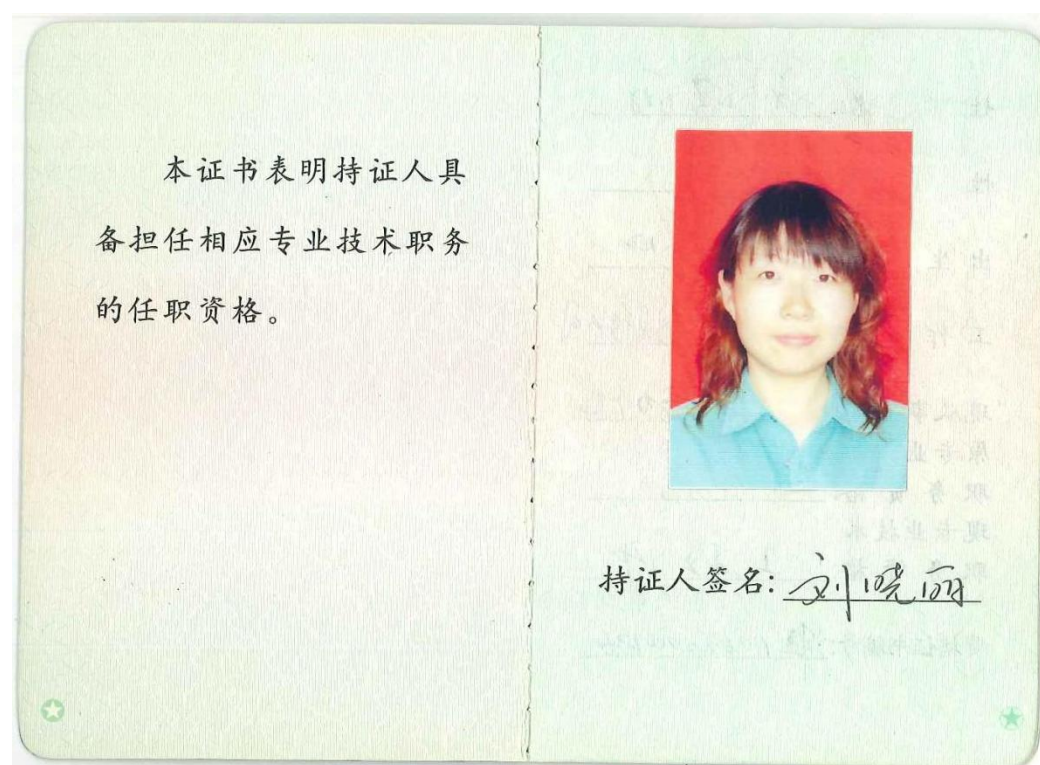 本证书表明持证人具
备担任相应专业技术职务
的任职资格。
持证人签名：刘晓丽